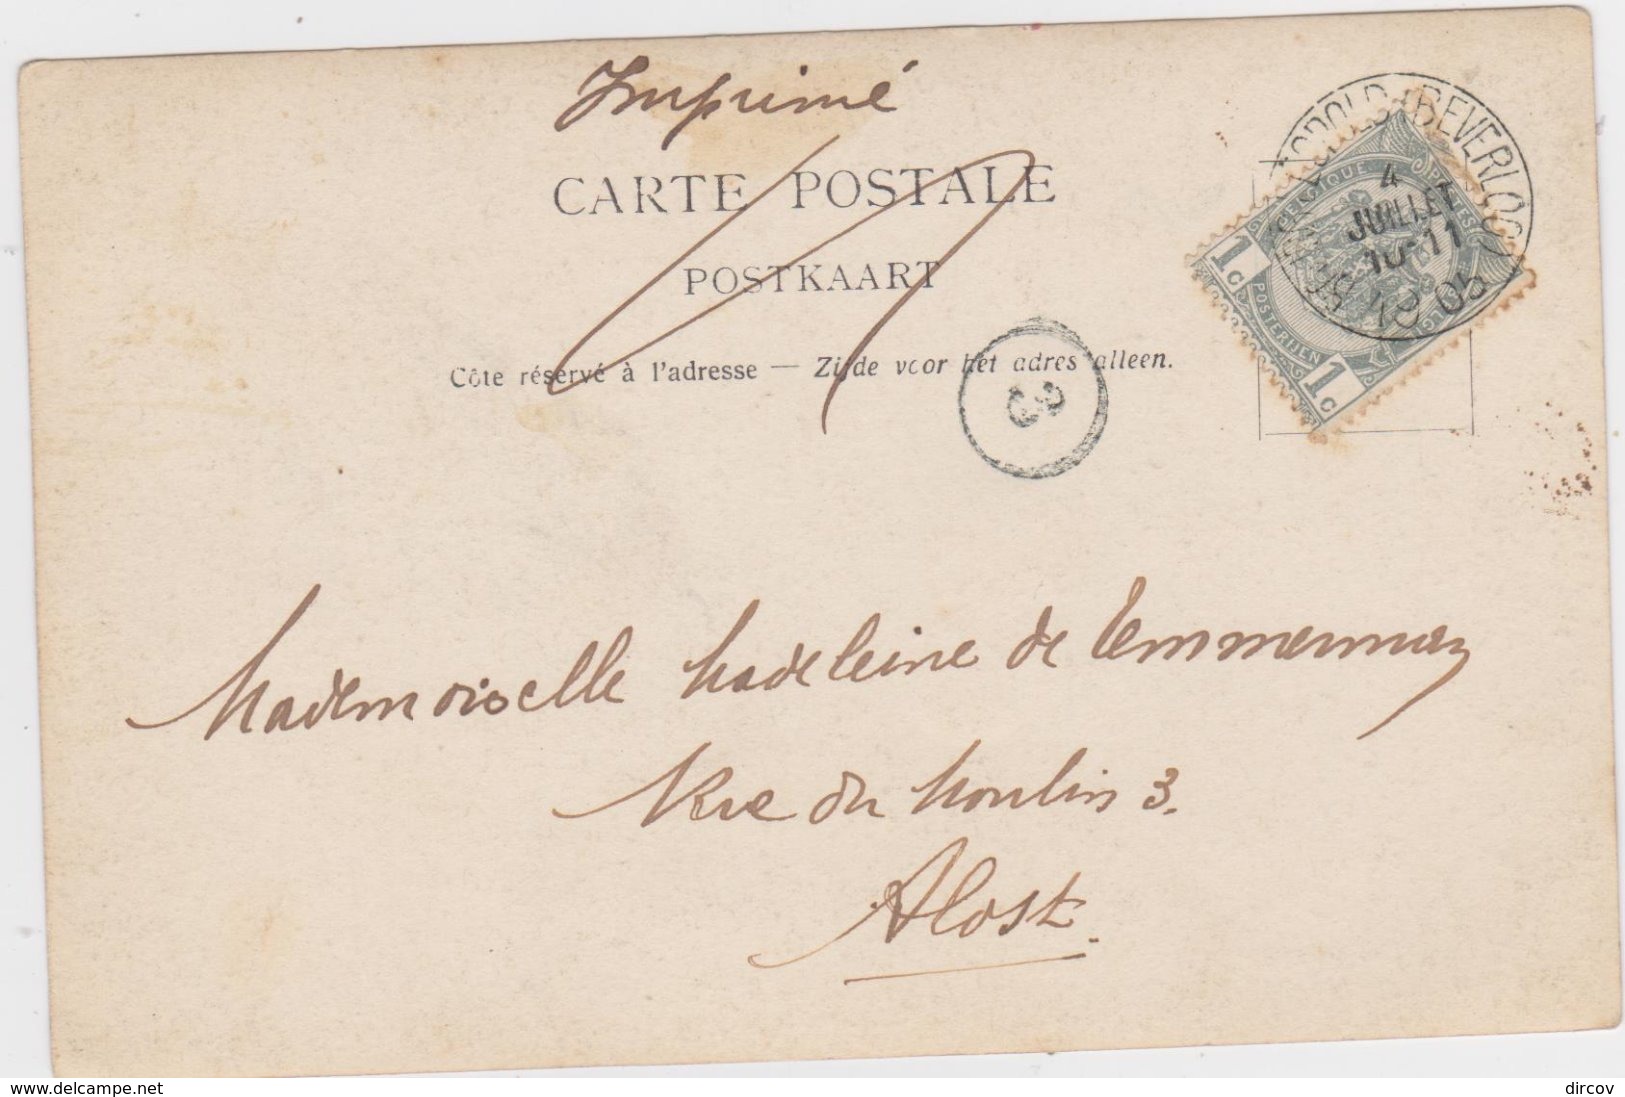 Imprimé
CARTE POSTALE
POSTKAART
Côte réservé à l'adresse — Zijde voor het adres alleen.
(BEVERLOO)
4
JUILLET
10-11
1905
BELGIQUE
POSTERIJEN
1c
1c
3
Mademoiselle Madeleine de
Rue du Moulin 3.
Alost.
www.delcampe.net
dircov